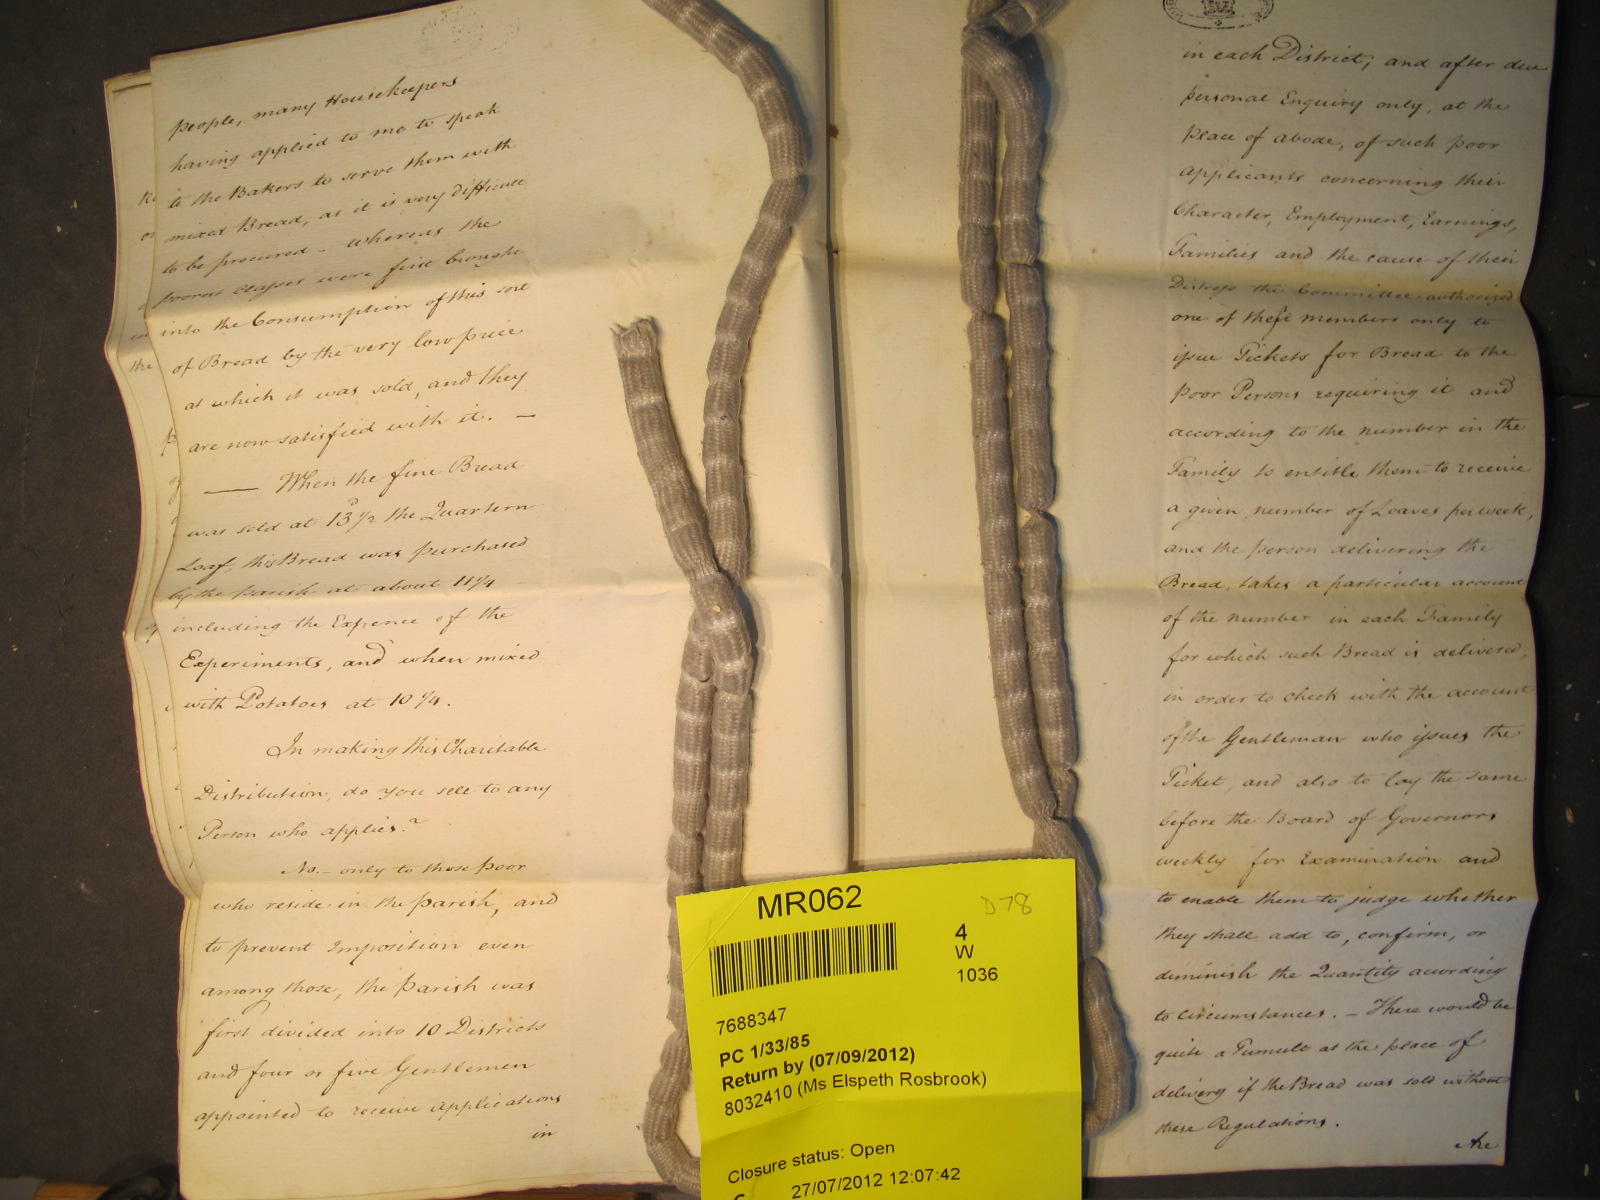 people, many Housekeepers
having applied to me to speak
to the Bakers to serve them with
mixed Bread, as it is very difficult
to be procured - whereas the
poorer Classes were first brought
into the Consumption of this sort
of Bread by the very low price
at which it was sold, and they
are now satisfied with it. —
— When the fine Bread
was sold at 13 1/2 the Quartern
Loaf, this Bread was purchased
by the Parish at about 11 1/4
including the Expence of the
Experiments, and when mixed
with Potatoes at 10 1/4.
In making this Charitable
Distribution, do you sell to any
Person who applies?
No. - only to those poor
who reside in the Parish, and
to prevent Imposition even
among those, the Parish was
first divided into 10 Districts
and four or five Gentlemen
appointed to receive applications
in
the
in each District; and after due
personal Enquiry only, at the
place of abode, of such poor
applicants concerning their
Character, Employment, Earnings,
Families and the cause of their
Distress the Committee authorized
one of these members only to
issue Tickets for Bread to the
poor Persons requiring it and
according to the number in the
Family to entitle them to receive
a given number of Loaves per week,
and the person delivering the
Bread, takes a particular account
of the number in each Family
for which such Bread is delivered,
in order to check with the account
of the Gentleman who issues the
Ticket, and also to lay the same
before the Board of Governors
weekly for Examination and
to enable them to judge whether
they shall add to, confirm, or
diminish the Quantity according
to circumstances. - There would be
quite a Tumult at the place of
delivery if the Bread was sold without
these Regulations.
Are
MR062
D78
4
W
1036
7688347
PC 1/33/85
Return by (07/09/2012)
8032410 (Ms Elspeth Rosbrook)
Closure status: Open
27/07/2012 12:07:42